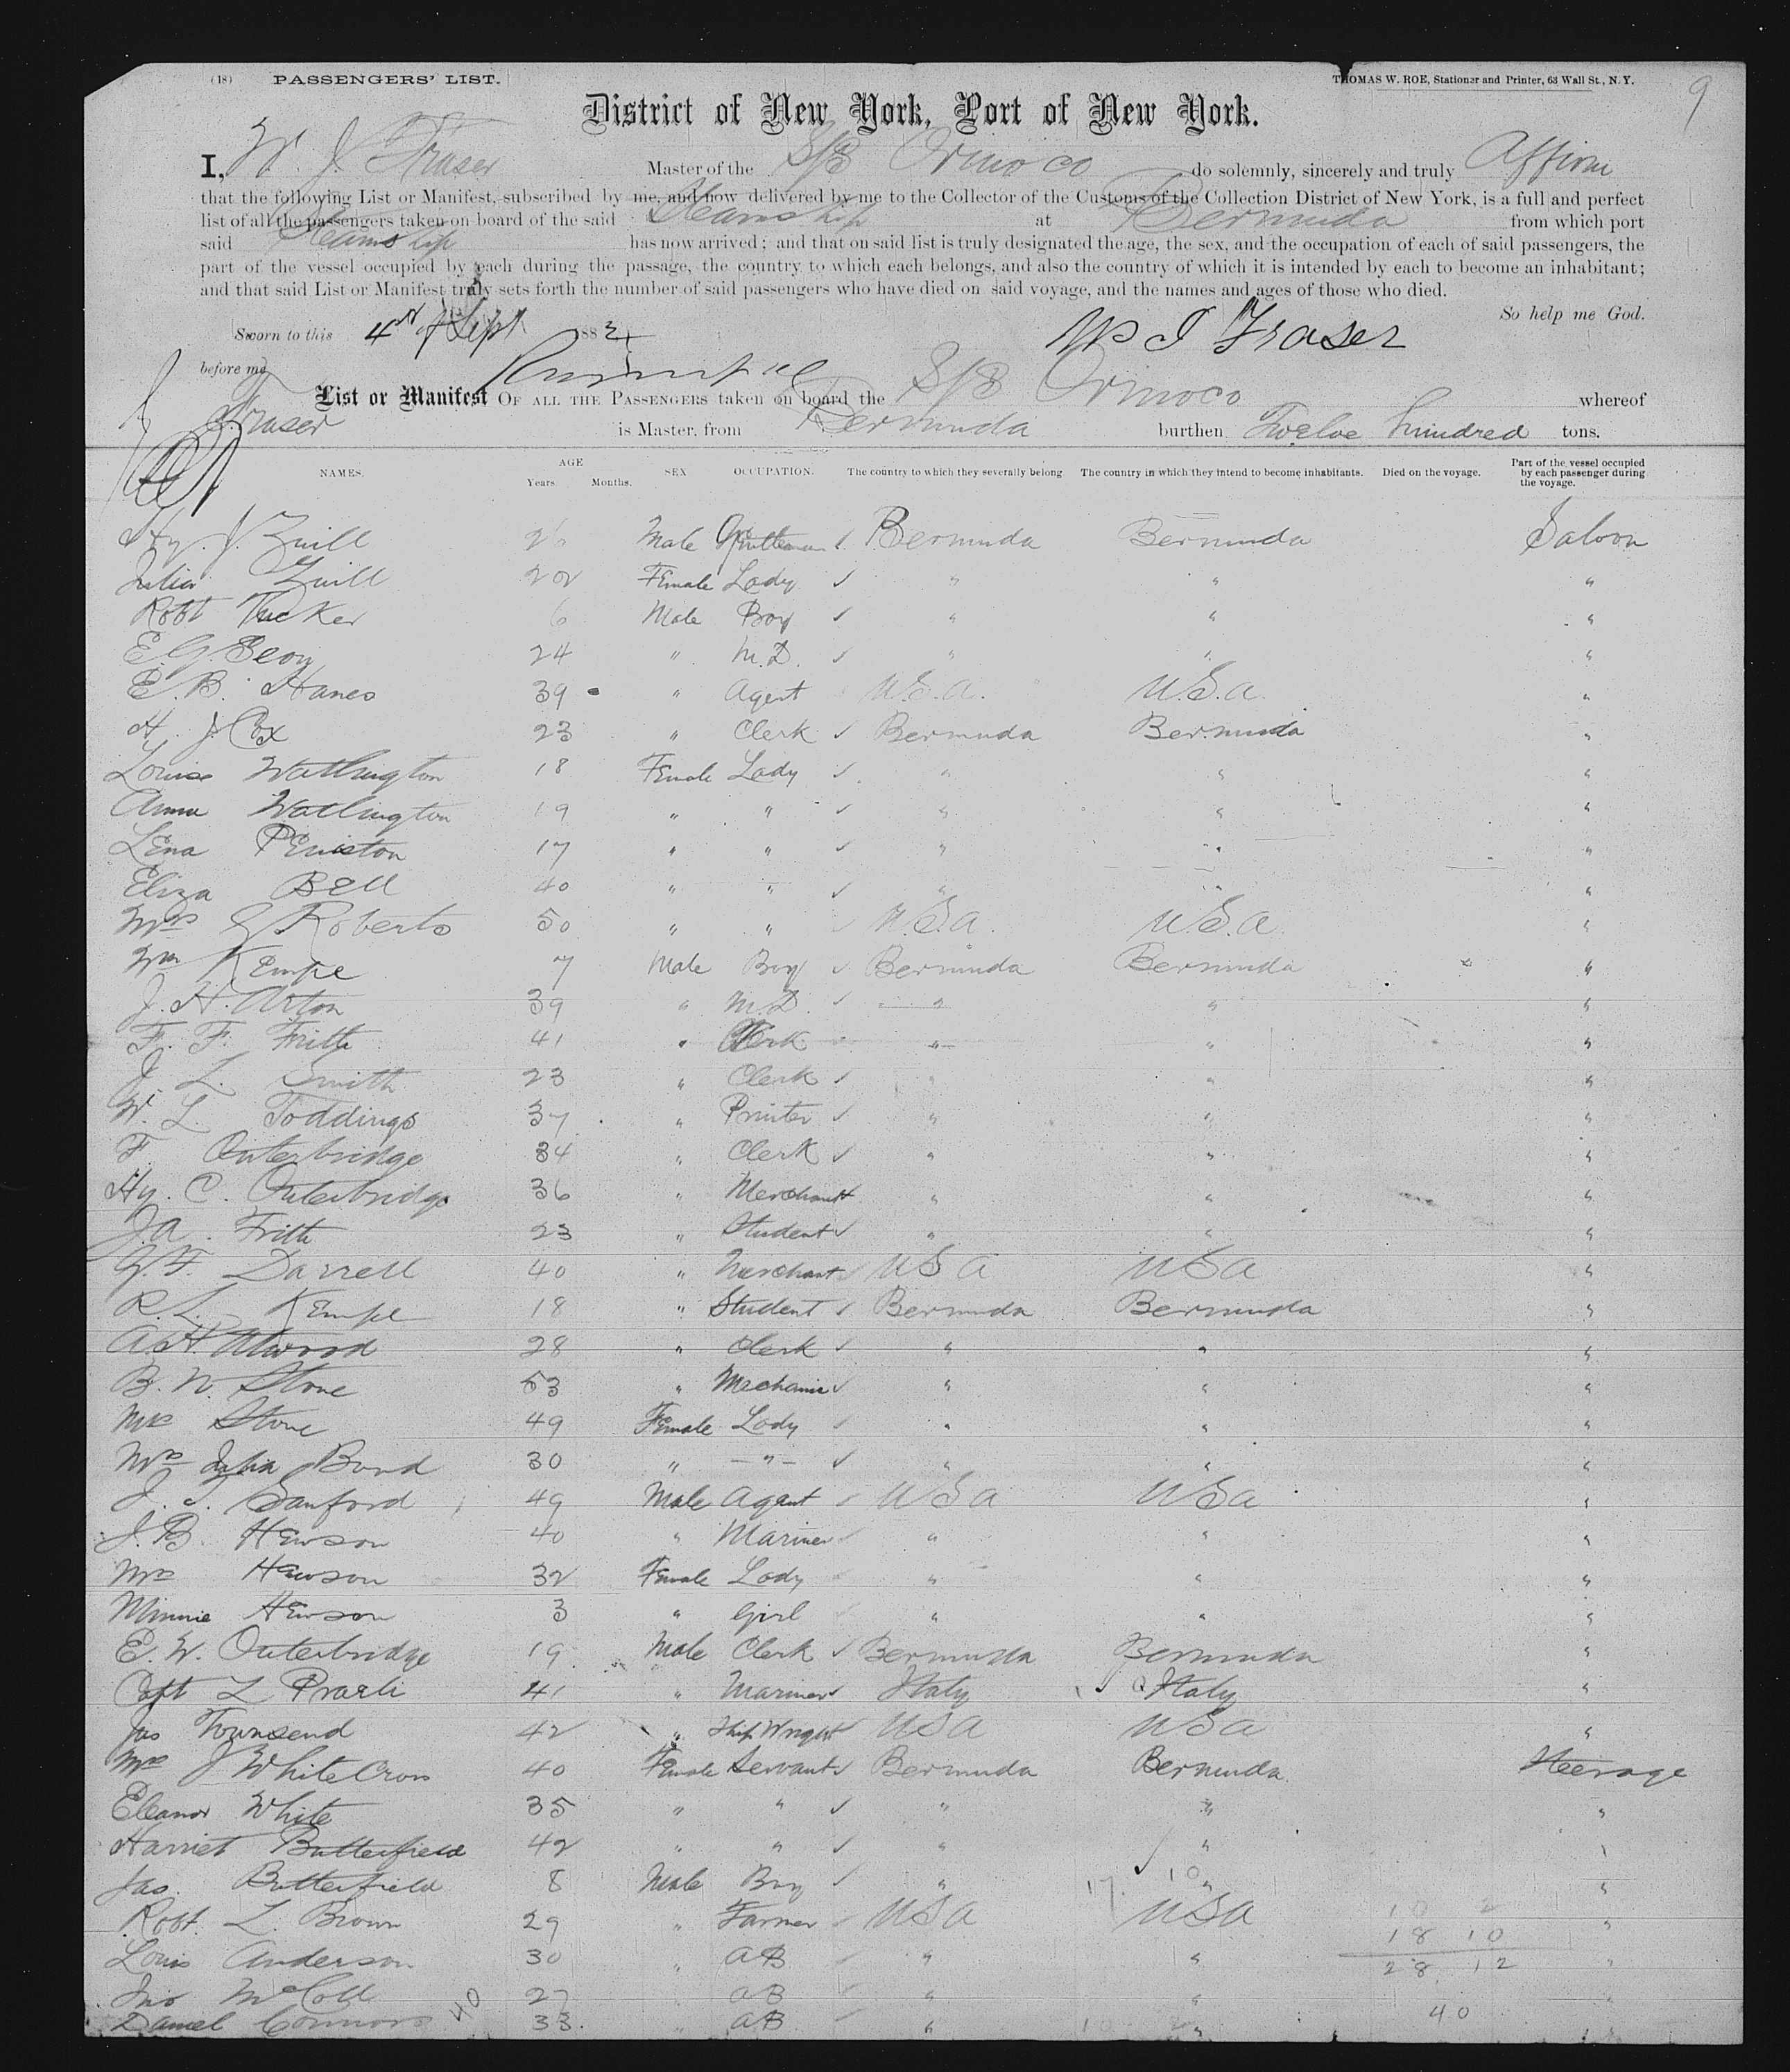 (18) PASSENGERS' LIST. THOMAS W. ROE, Stationer and Printer, 63 Wall St., N.Y. 9
District of New York, Port of New York.
I, W. J. Fraser Master of the S/S Orinoco do solemnly, sincerely and truly Affirm
that the following List or Manifest, subscribed by me, and now delivered by me to the Collector of the Customs of the Collection District of New York, is a full and perfect
list of all the passengers taken on board of the said Steamship at Bermuda from which port
said Steamship has now arrived; and that on said list is truly designated the age, the sex, and the occupation of each of said passengers, the
part of the vessel occupied by each during the passage, the country to which each belongs, and also the country of which it is intended by each to become an inhabitant;
and that said List or Manifest truly sets forth the number of said passengers who have died on said voyage, and the names and ages of those who died.
So help me God.
Sworn to this 4th of Sept 188 W J Fraser
before me
List or Manifest OF ALL THE PASSENGERS taken on board the S/S Orinoco whereof
Fraser is Master, from Bermuda burthen Twelve hundred tons.
NAMES. AGE Years. Months. SEX OCCUPATION. The country to which they severally belong The country in which they intend to become inhabitants. Died on the voyage. Part of the vessel occupied by each passenger during the voyage.
Hy. J. Zuill 26 Male Gentleman Bermuda Bermuda Saloon
Julia Zuill 22 Female Lady " " "
Robt Tucker 6 Male Boy " " "
E. G. 24 " M.D. " " "
E. B. Hanes 39 " Agent U.S.a. U.S.a. "
H. J. Cox 23 " Clerk Bermuda Bermuda "
Louise Watlington 18 Female Lady " " "
Anna Watlington 19 " " " " "
Lena Peniston 17 " " " " "
Eliza Bell 40 " " " " "
Mrs G Roberts 50 " " U.S.a. U.S.a. "
Wm Kempe 7 Male Boy Bermuda Bermuda "
J. H. Arton 39 " M.D. " " "
F. F. Frith 41 " Clerk " " "
J. L. Smith 23 " Clerk " " "
W. L. Toddings 37 " Printer " " "
F Outerbridge 34 " Clerk " " "
Hy. C. Outerbridge 36 " Merchant " " "
J. A. Frith 23 " Student " " "
G. F. Darrell 40 " Merchant U S a U S a "
R. L. Kempe 18 " Student Bermuda Bermuda "
A. H. Atwood 28 " Clerk " " "
B. W. Stone 53 " Mechanic " " "
Mrs Stone 49 Female Lady " " "
Mrs Julia Bond 30 " " " " "
J. T. Sanford 49 Male Agent U S a U S a "
J. B. Hewson 40 " Mariner " " "
Mrs Hewson 32 Female Lady " " "
Minnie Hewson 3 " Girl " " "
E. W. Outerbridge 19 Male Clerk Bermuda Bermuda "
Capt L 41 " Mariner Italy Italy "
Jas Townsend 42 " Ship Wright U S a U S a "
Mrs J WhiteCross 40 Female Servant Bermuda Bermuda Steerage
Eleanor White 35 " " " " "
Harriet Butterfield 42 " " " " "
Jas. Butterfield 8 Male Boy " " "
Robt. L. Brown 29 " Farmer U S a U S a "
Louis Anderson 30 " AB " " "
Jno McColl 27 " AB " " "
Daniel Connors 33 " AB " " "
17 10
10 2
18 10
28 12
40
40